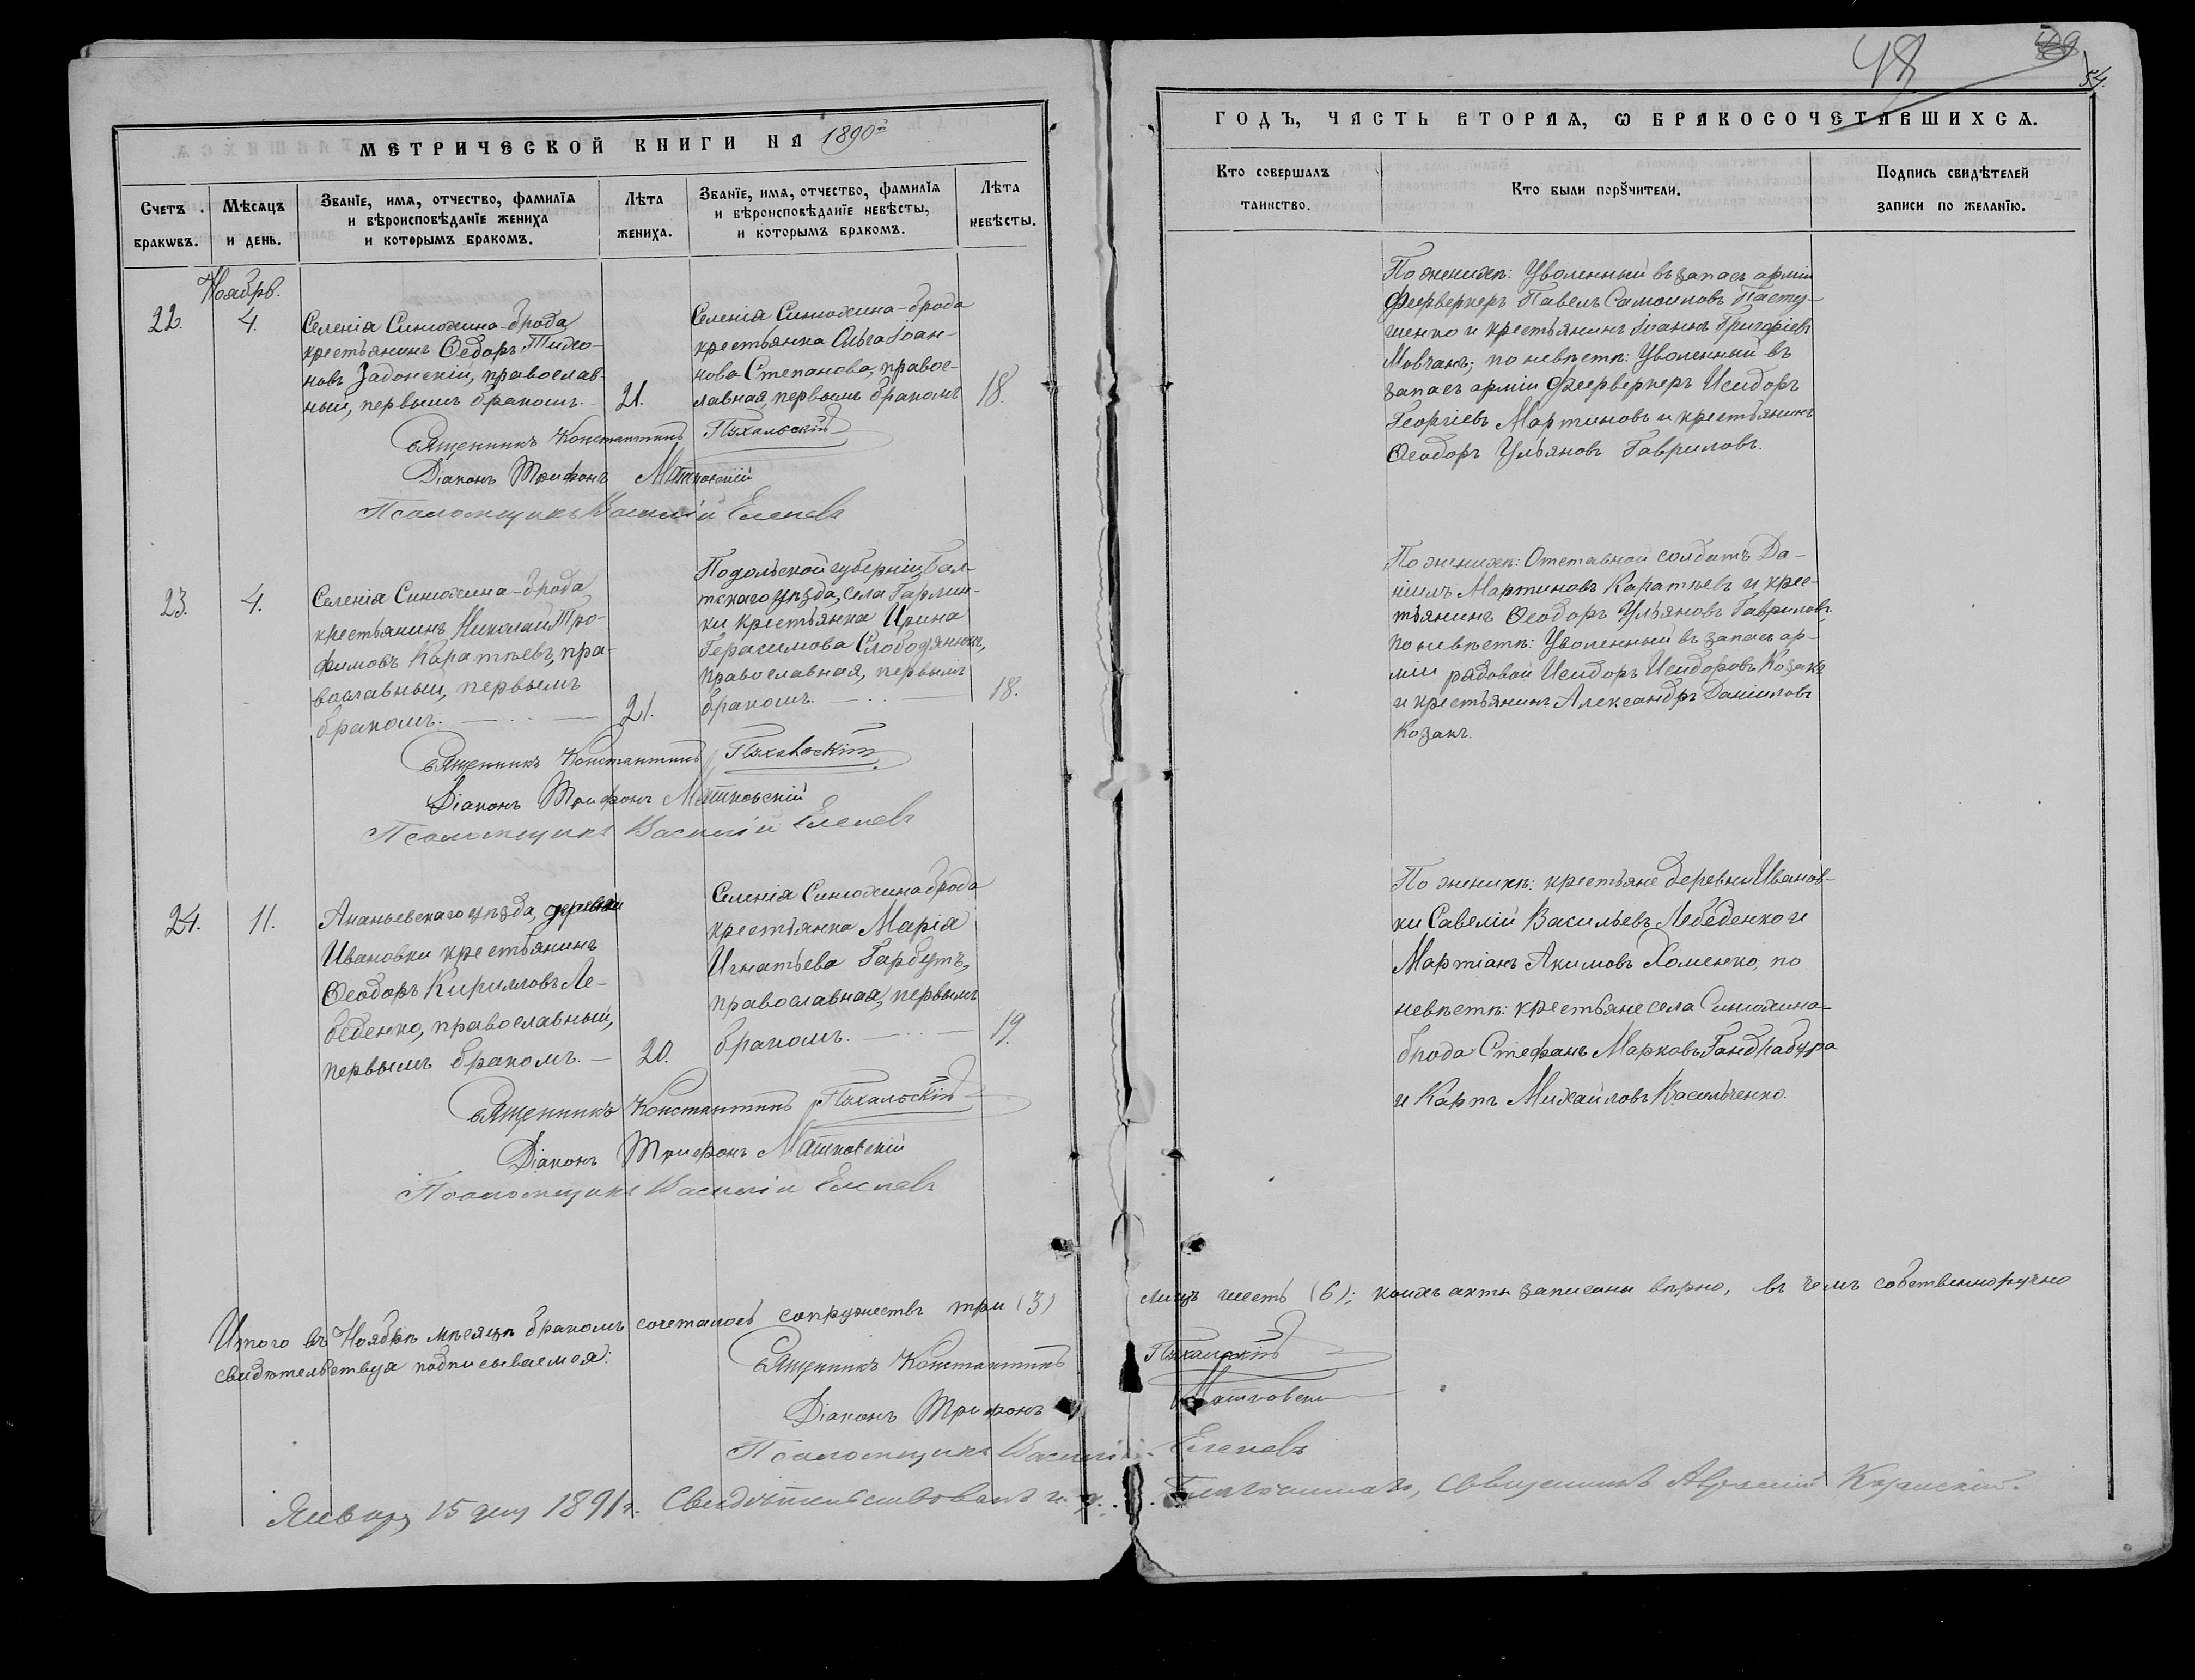 МЕТРИЧЕСКОЙ КНИГИ НА 1890й
Счетъ браковъ.
Мѣсяцъ и день.
Званіе, имя, отчество, фамилія
и вѣроисповѣданіе жениха
и которымъ бракомъ.
Лѣта
жениха.
Званіе, имя, отчество, фамилія
и вѣроисповѣданіе невѣсты,
и которымъ бракомъ.
Лѣта
невѣсты.
Ноябрь.
22.
4.
Селенія Синюхина-брода
крестьянинъ Ѳедоръ Тихо-
новъ Задонскій, православ-
ный, первымъ бракомъ.
21.
Селенія Синюхина-брода
крестьянка Ольга Іоан-
нова Степанова, правос-
лавная, первымъ бракомъ
18.
Священникъ Константинъ Пухальскій
Діаконъ Трифонъ Машковскій
Псаломщикъ Василій
23.
4.
Селенія Синюхина-брода
крестьянинъ Николай Тро-
фимовъ Каратѣевъ, пра-
вославный, первымъ
бракомъ.
21.
Подольской губерніи, Бал-
тскаго уѣзда, села
крестьянка Ирина
Герасимова
православная, первымъ
бракомъ.
18.
Священникъ Константинъ Пухальскій
Діаконъ Трифонъ Машковскій
Псаломщикъ Василій
24.
11.
Ананьевскаго уѣзда, деревни
Ивановки крестьянинъ
Ѳеодоръ Кирилловъ Ле-
беденко, православный,
первымъ бракомъ.
20.
Селенія Синюхина брода
крестьянка Марія
Игнатьева Гарбутъ,
православная, первымъ
бракомъ.
19.
Священникъ Константинъ Пухальскій
Діаконъ Трифонъ Машковскій
Псаломщикъ Василій
48
54.
ГОДЪ, ЧАСТЬ ВТОРАЯ, Ѡ БРАКОСОЧЕТАВШИХСЯ.
Кто совершалъ
таинство.
Кто были порꙋчители.
Подпись свидѣтелей
записи по желанію.
По женихѣ: Уволенный въ запасъ арміи
фейерверкеръ Павелъ Самоиловъ Пасту-
шенко и крестьянинъ Іоаннъ Григоріевъ
Мовчанъ; по невѣстѣ: Уволенный въ
запасъ арміи фейерверкеръ Исидоръ
Георгіевъ Мартиновъ и крестьянинъ
Ѳеодоръ Ульяновъ Гавриловъ.
По женихѣ: Отставной солдатъ Да-
ніилъ Мартиновъ Каратѣевъ и крес-
тьянинъ Ѳеодоръ Ульяновъ Гавриловъ,
по невѣстѣ: Уволенный въ запасъ ар-
міи рядовой Исидоръ Исидоровъ Козакъ
и крестьянинъ Александръ Даніиловъ
Козакъ.
По женихѣ: крестьяне деревни Иванов-
ки Савелій Васильевъ Лебеденко и
Мартіанъ Акимовъ Хоменко, по
невѣстѣ: крестьяне села Синюхина-
брода Стефанъ Марковъ Гандрабура
и Карпъ Михайловъ Васильченко.
Итого въ Ноябрѣ мѣсяцѣ бракомъ сочеталось супружествъ три (3) лицъ шесть (6); коихъ акты записаны вѣрно, въ чемъ собственноручно
свидѣтельствуя подписываемся:
Священникъ Константинъ Пухальскій
Діаконъ Трифонъ Машковскій
Псаломщикъ Василій
Января 15 дня 1891 г. Свидѣтельствовалъ Благочинный, Священникъ